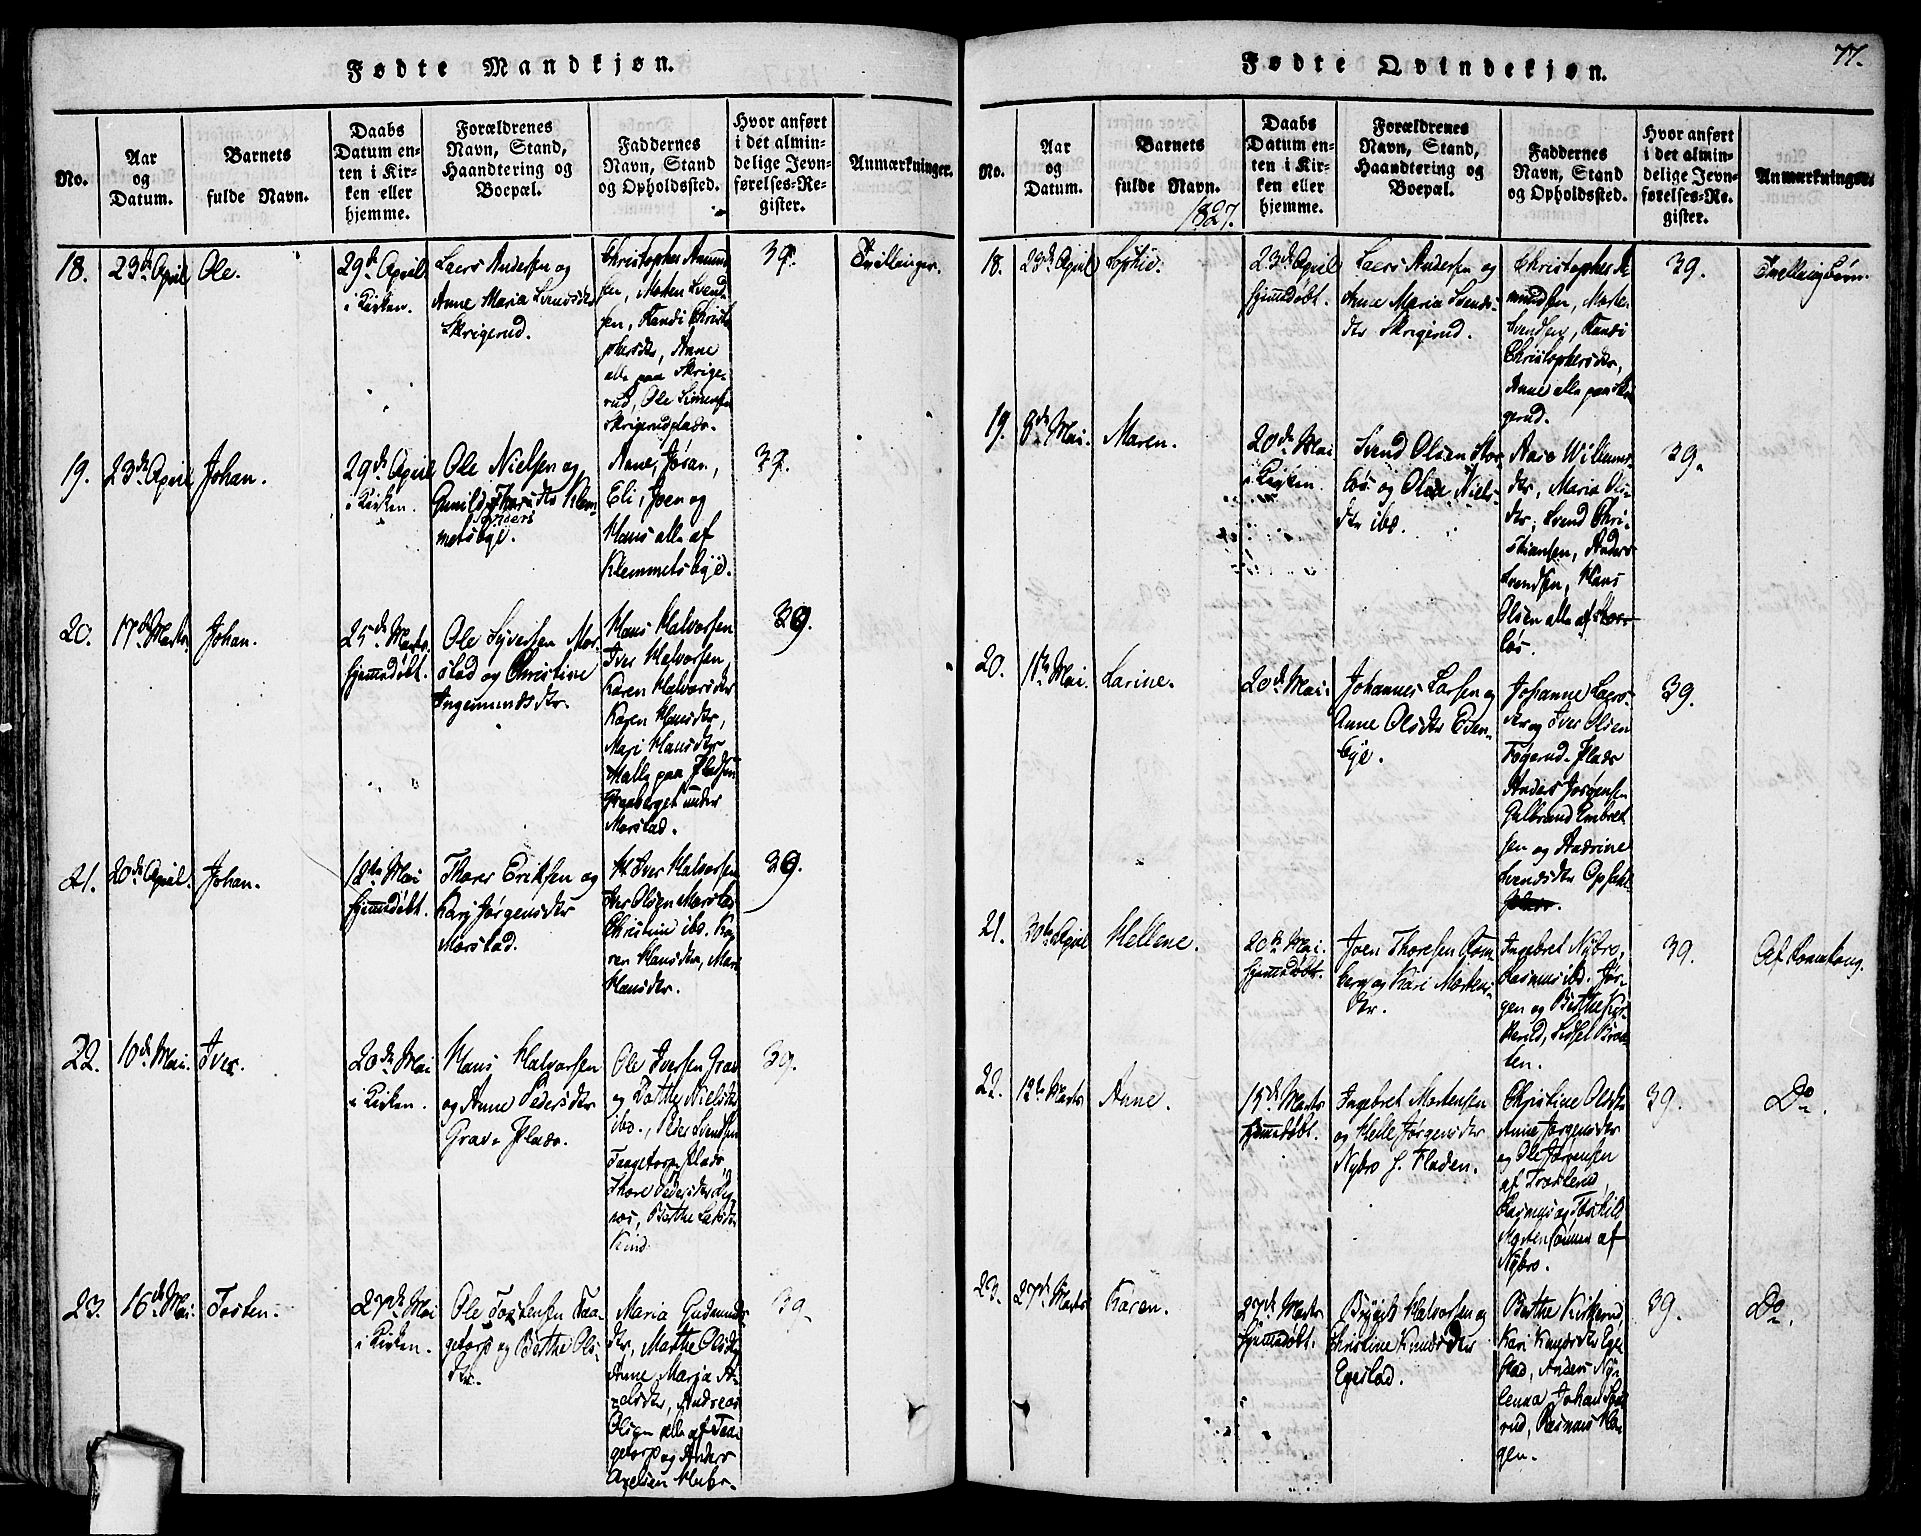 Fødte Mandkjøn.
No.
Aar
og
Datum.
Barnets
fulde Navn.
Daabs
Datum en-
ten i Kir-
ken eller
hjemme.
Forældrenes
Navn, Stand,
Haandtering og
Boepæl.
Faddernes
Navn, Stand
og Opholdssted.
Hvor anført
i det almin-
delige Jevn-
førelses-Re-
gister.
Anmærkninger.
18.
23de April
Ole.
29de April
i Kirken.
Laers Andersen og
Anne Maria Svendsdtr
Skrigerud.
Christopher Amund
sen, Morten Svend-
sen, Randi Christo
phersdtr, Anne
alle paa Skrige-
rud, Ole Simensen
Skrigerudplads.
39.
Tvillinger.
19.
23de April
Johan.
29de April
i Kirken.
Ole Nielsen og
Gunild
Klem-
metsbye.
Anne, Jøran,
Eli, Joen og
Hans alle af
Klemmetsbye.
39.
20.
17de Marts
Johan.
25de Marts
hjemmedøbt.
Ole Syversen Mor-
stad og Christine
Ingemundsdtr.
Hans Halvorsen
Iver Halvorsen,
Karen Halvorsdtr
Karen Hansdtr,
Mari Hansdtr
paa Pladsen
under
Morstad.
39.
21.
20de April.
Johan.
12te Mai
hjemmedøbt.
Thore Eriksen og
Kari Jørgensdtr
Morstad.
Iver Halvorsen
Olsen Morstad
Christine ibd. Ka
ren Hansdtr, Mari
Hansdtr.
39.
22.
10de Mai.
Iver.
20de Mai
i Kirken.
Hans Halvorsen
og Anne Pedersdtr
Grav Plads.
Ole Iversen Grav
og Dorthe Nielsdtr
ibd., Peder Svendsen
Taagetorp plads,
Thore Pedersdtr
Berthe Larsdtr
Kind.
39.
23.
16de Mai.
Tosten.
27de Mai
i Kirken.
Ole Tostensen Taa-
getorp og Berthe Ols-
dtr.
Maria Gudmunds
dtr, Marthe Olsdtr
Anne Maria A-
Andreas
Olsen alle af Taa
getorp og Anders
Axelsen
39.
Fødte Qvindekjøn.
77.
No.
Aar
og
Datum.
Barnets
fulde Navn.
1827.
Daabs
Datum en-
ten i Kir-
ken eller
hjemme.
Forældrenes
Navn, Stand,
Haandtering og
Boepæl.
Faddernes
Navn, Stand
og Opholdssted.
Hvor anført
i det almin-
delige Jevn-
førelses-Re-
gister.
Anmærkninger.
18.
23de April
Sophie.
23de April
hjemmedøbt.
Laers Andersen og
Anne Maria Svends-
dtr Skrigerud.
Christopher A-
mundsen, Morten
Svendsen, Randi
Christophersdtr,
Anne alle paa Skri
gerud.
39.
Tvillingbørn.
19.
8de Mai.
Maren.
20de Mai
i Kirken.
Svend Olsen Stor-
løs og Olea Niels-
dtr ibd.
Aase Willums-
dtr, Maria Ols-
dtr, Svend Chri-
stiansen, Anders
Svendsen, Hans
Olsen alle af Stor-
løs.
39.
20.
11te Mai.
Larine.
20de Mai.
Johannes Larsen og
Anne Olsdtr Even-
bye.
Johanne Laers-
dtr og Iver Olsen
Togerud Plads
Anders Jørgensen
Gulbrand Embret
sen og Andrine
Svendsdtr Opsahl
39.
21.
30te April
Hellene.
20de Mai.
hjemmedøbt.
Joen Thoresen Rom-
berg og Kari Mortens-
dtr.
Ingebret Nybro,
Rasmus ibd. Jør-
gen og Berthe Kir-
kerud, Sidsel Braa-
ten.
39.
Af Romskong.
22.
12te Marts
Anne.
15de Marts
hjemmedøbt.
Ingebret Mortensen
og Helle Jørgensdtr
Nybro i Fladen.
Christine Olsdtr
Anne Jørgensdtr
og Ole Jørgensen
af Troslerud,
Rasmus og Torkild
af
Nybro.
39.
Do.
23.
27de Marts
Karen.
27de Marts
hjemmedøbt.
Brynild Halvorsen og
Christine Knudsdtr
Egestad.
Berthe Kirkerud,
Kari Knudsdtr Ege
stad, Anders
Johan
rud, Rasmus Ha-
gen.
39.
Do.